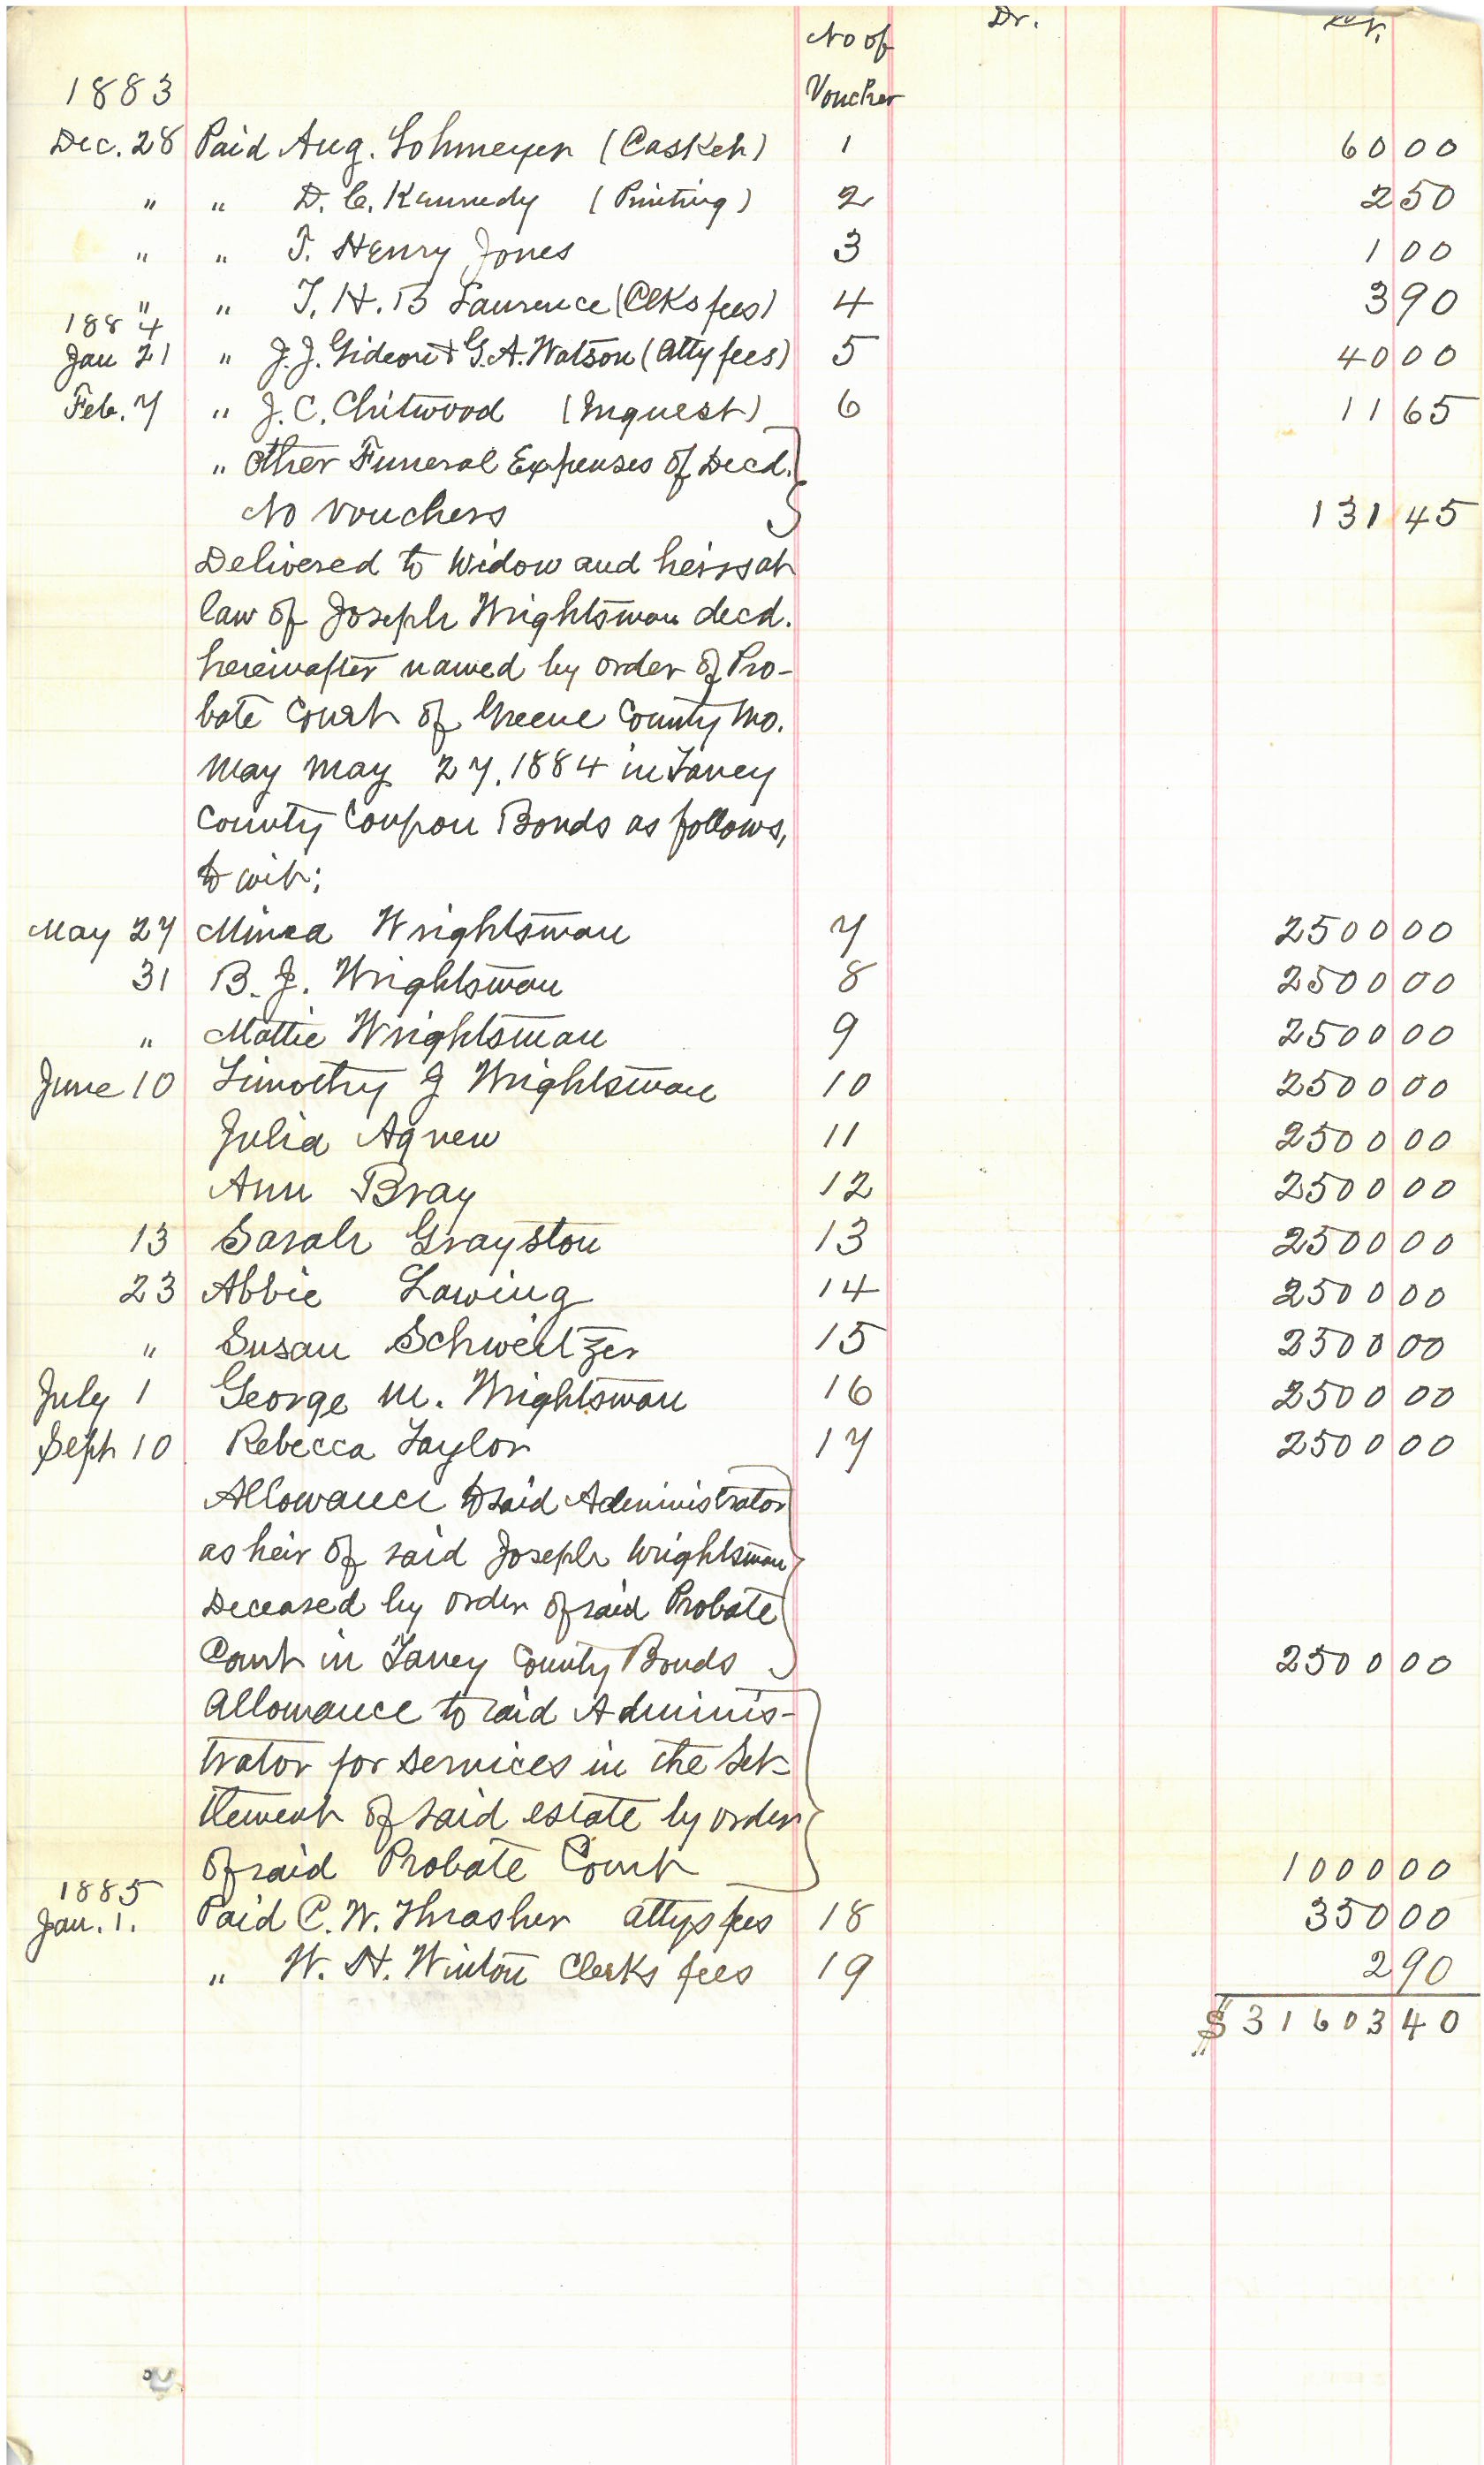 No of Dr. Cr.
1883 Voucher
Dec. 28 Paid Aug. Lohmeyer (Casket) 1 60 00
" " D. C. Kennedy (Printing) 2 2 50
" " T. Henry Jones 3 1 00
" " T. H. B Laurence (Clks fees) 4 3 90
1884
Jan 21 " J. J. Gideon & G. A. Watson (Atty fees) 5 40 00
Feb. 7 " J. C. Chitwood (Inquest) 6 11 65
" Other Funeral Expenses of Decd.
No Vouchers 131 45
Delivered to Widow and heirs at
law of Joseph Wrightsman decd.
hereinafter named by order of Pro-
bate Court of Greene County Mo.
May May 27, 1884 in Taney
County Coupon Bonds as follows,
to wit;
May 27 Minea Wrightsman 7 2500 00
31 B. J. Wrightsman 8 2500 00
" Mattie Wrightsman 9 2500 00
June 10 Timothy J Wrightsman 10 2500 00
Julia Agnew 11 2500 00
Ann Bray 12 2500 00
13 Sarah Grayston 13 2500 00
23 Abbie Lawing 14 2500 00
" Susan Schweitzer 15 2500 00
July 1 George M. Wrightsman 16 2500 00
Sept 10 Rebecca Taylor 17 2500 00
Allowance to said Administrator
as heir of said Joseph Wrightsman
Deceased by order of said Probate
Court in Taney County Bonds 2500 00
Allowance to said Adminis-
trator for services in the Set-
tlement of said estate by order
of said Probate Court 1000 00
1885
Jan. 1. Paid C. W. Thrasher attys fees 18 350 00
" W. H. Winton Clerks fees 19 2 90
$31603 40